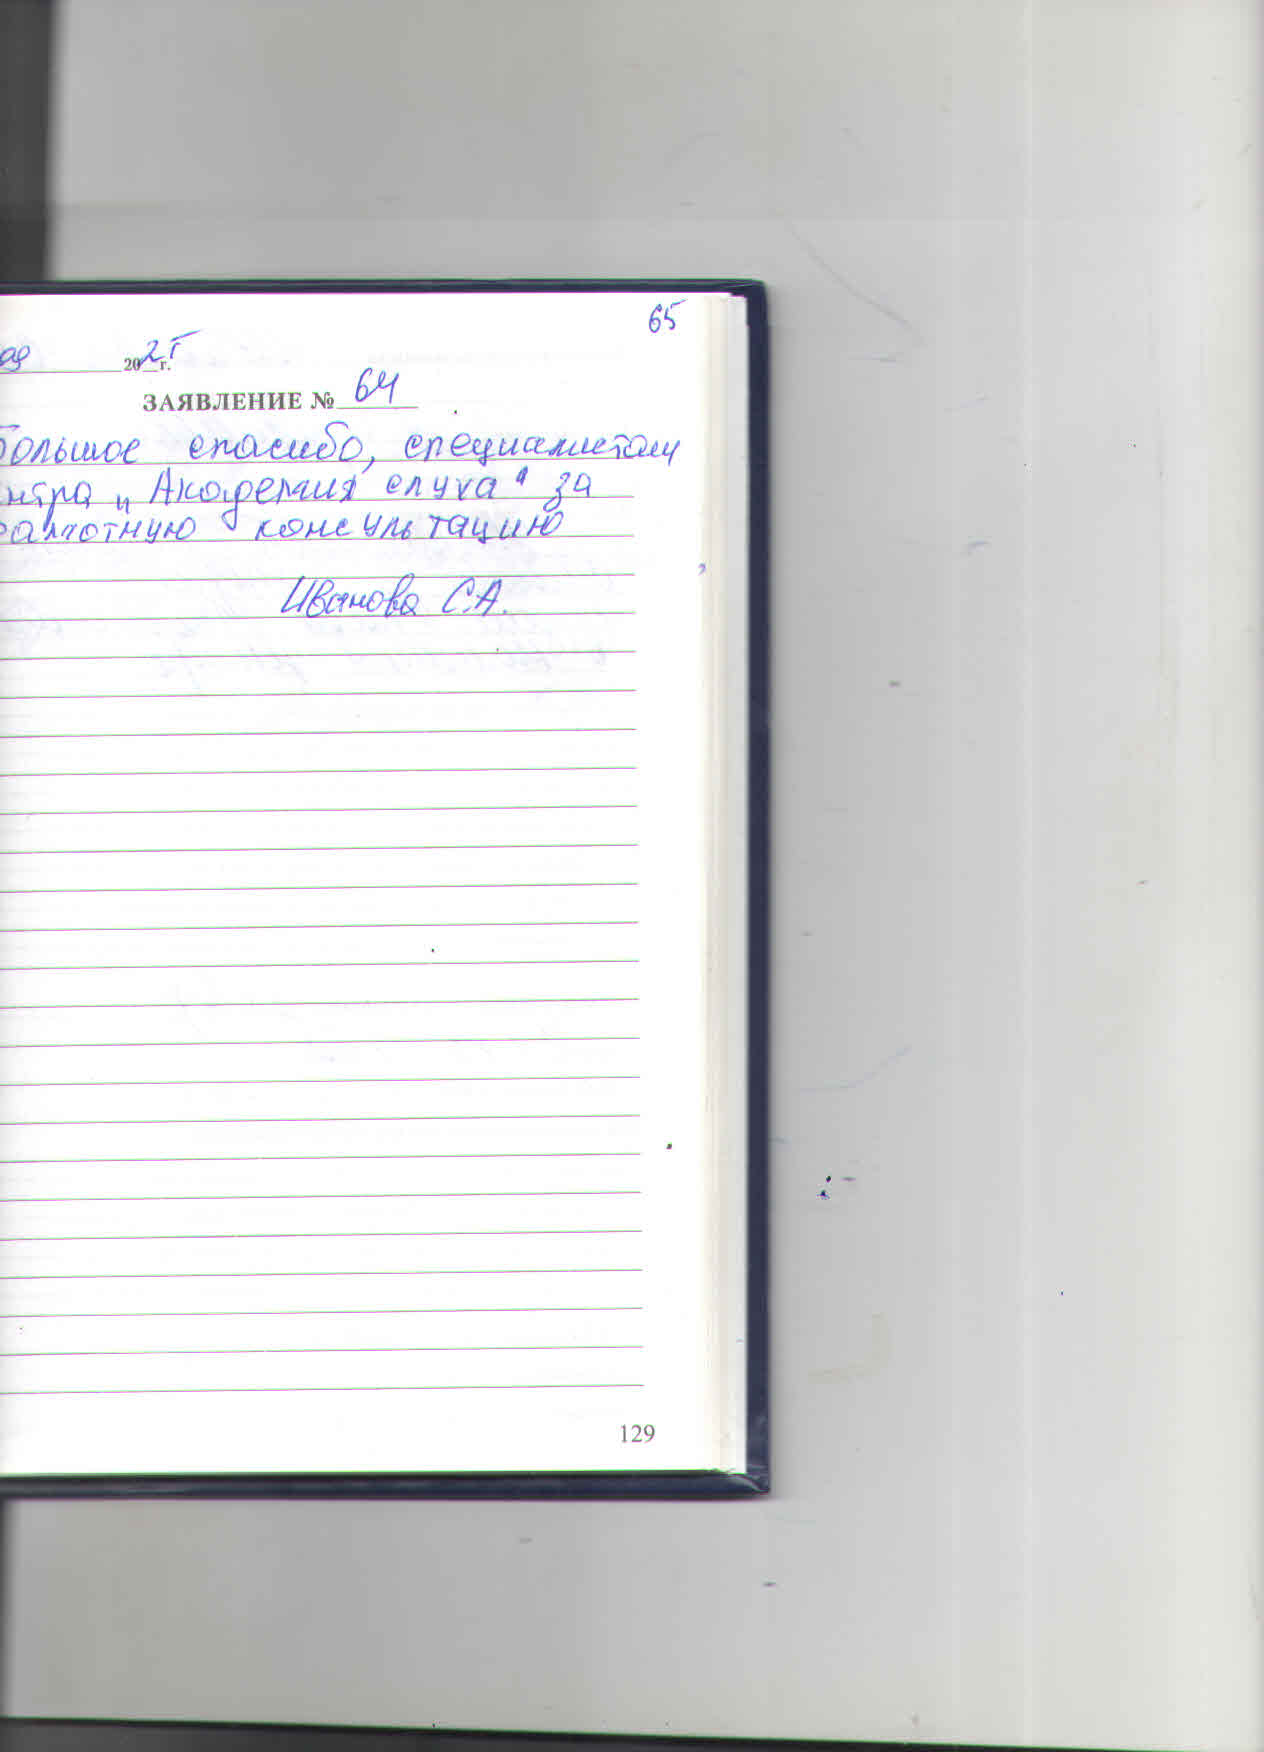 65
2021г.
ЗАЯВЛЕНИЕ № 64
Большое спасибо, специалистам
нтра „Академия слуха" за
рамотную консультацию
Иванова С.А.
129